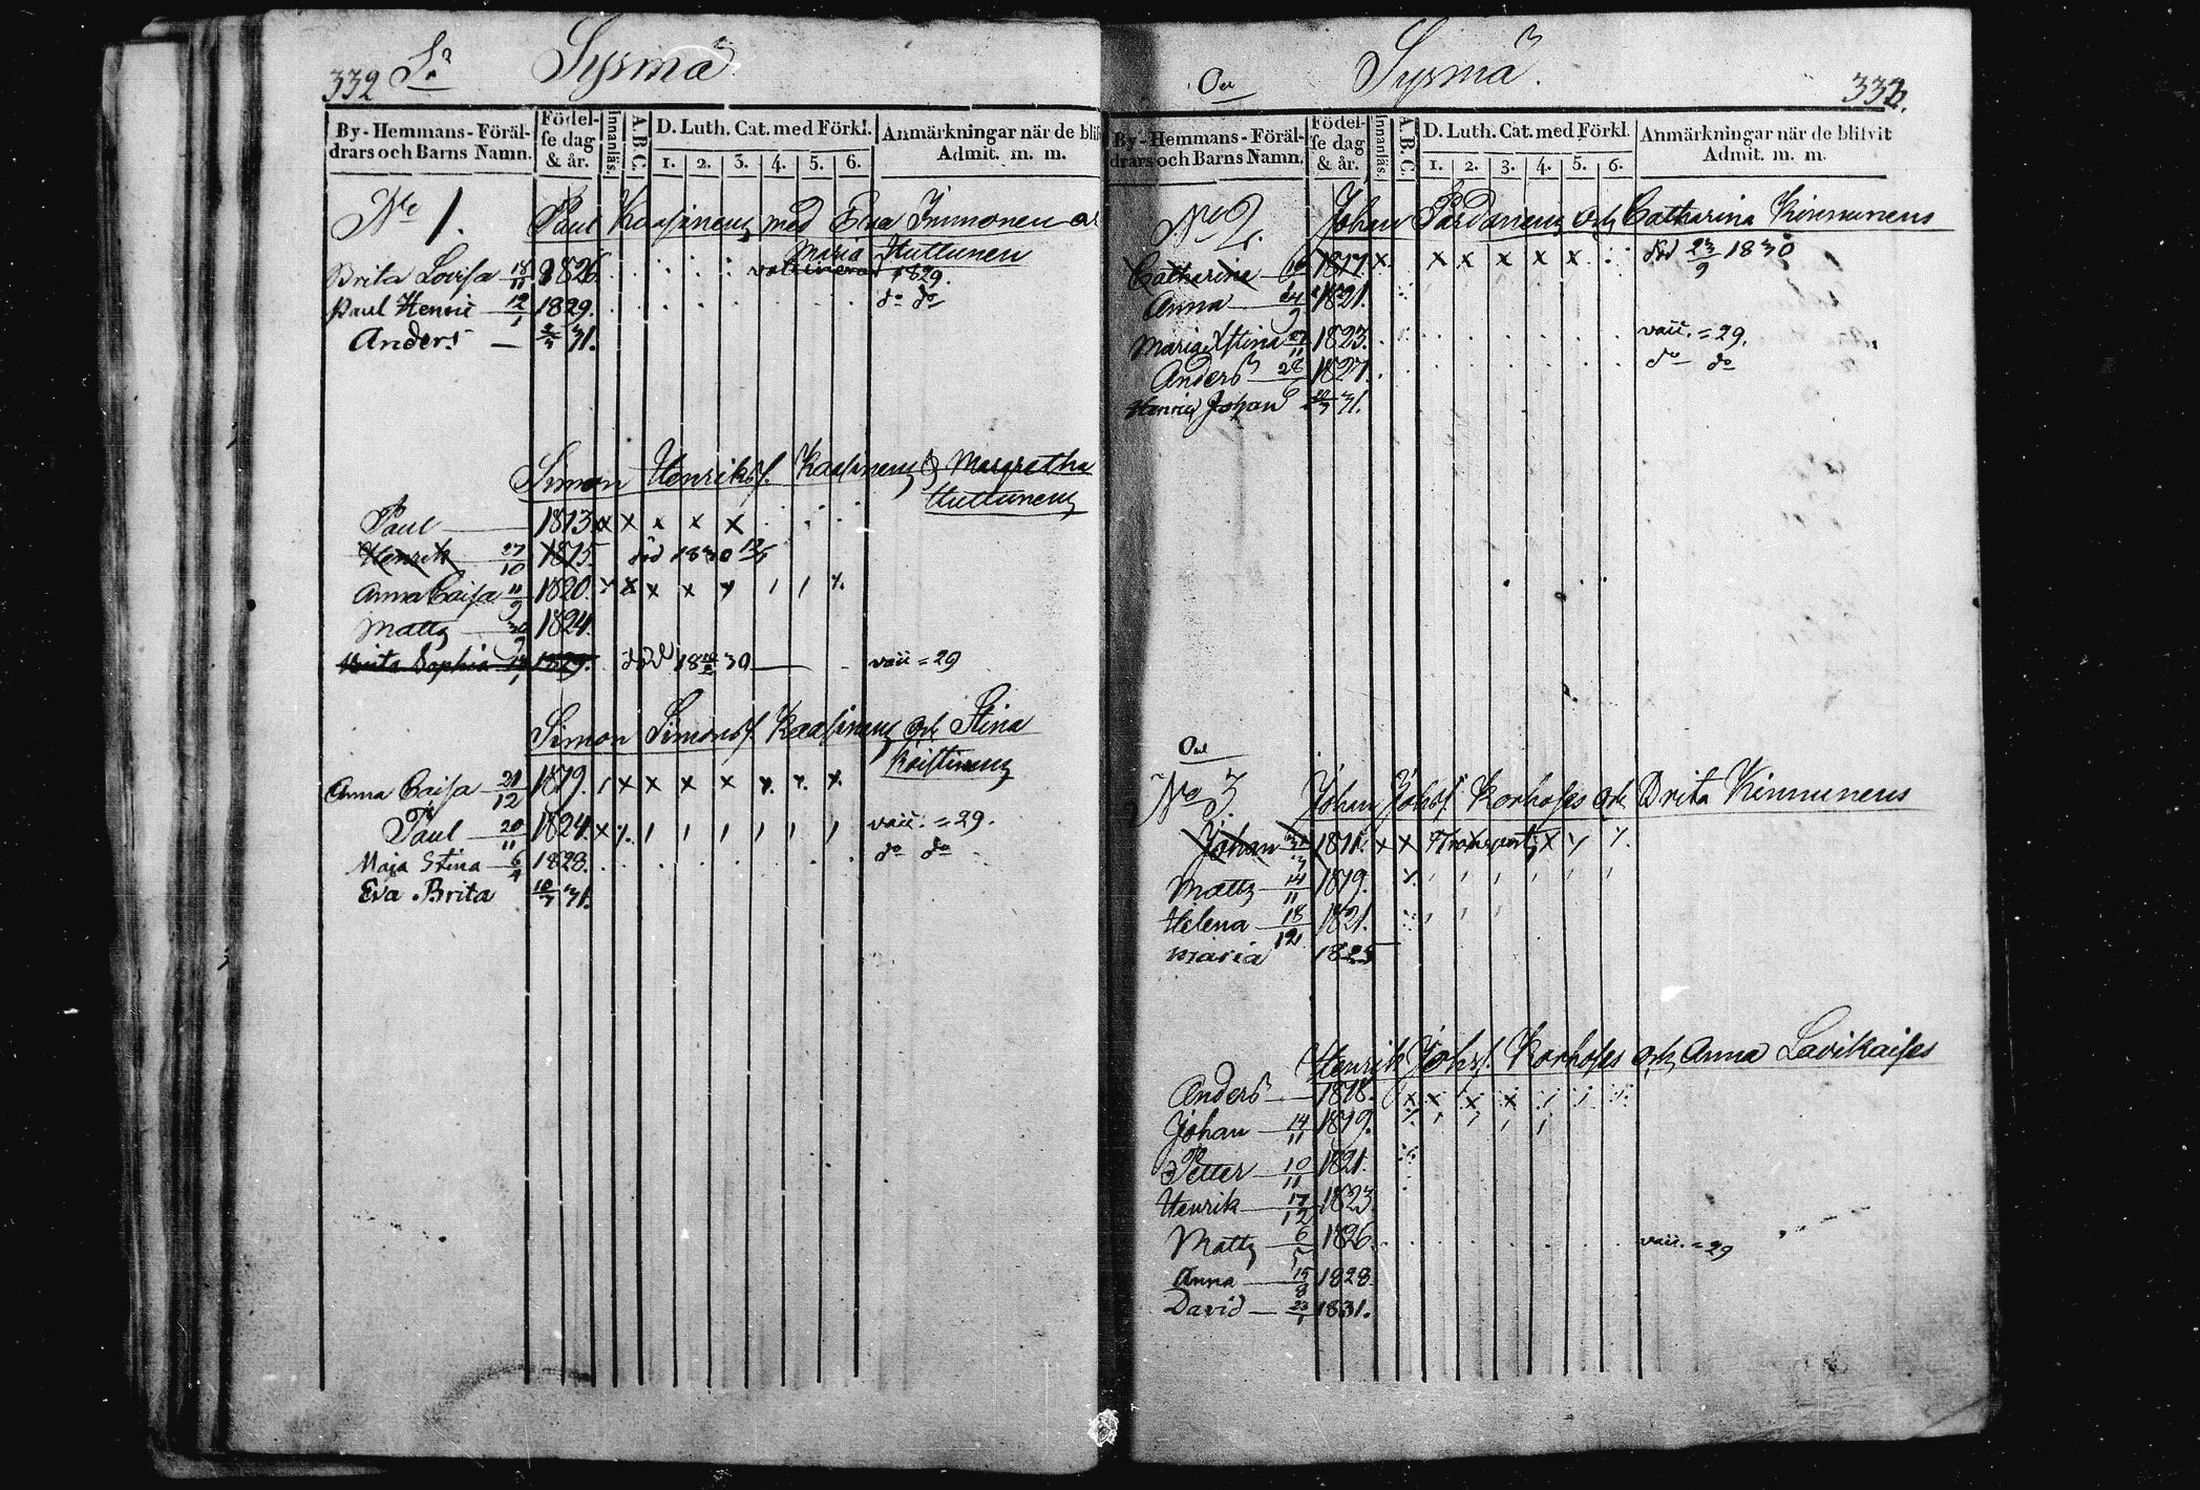 332 Sysmä
By-Hemmans-Föräl-
drars och Barns Namn.
Födel-
se dag
& år.
Innanläs.
A.B.C.
D. Luth. Cat. med Förkl.
1. 2. 3. 4. 5. 6.
Anmärkningar när de blif
Admit. m. m.
No 1. Paul Kaasinen med Eva Immonen
Maria Huttunen
Brita Lovisa 18/11 1826. 1829.
Paul Henric 12/1 1829. do do
Anders 31.
Simon Henrikss. Kaasinen & Margretha
Huttunen
Paul 1813 x x x x x
Henrik 27/10 1815. död 1830
Anna Caisa 11/9 1820. x x x x
Matts 1824.
Brita Sophia 1829. död 30 vacc = 29
Simon Simonss. Kaasinen och Stina
Anna Caisa 21/12 1819. x x x x
Paul 20/11 1824. x vacc. = 29.
Maja Stina 1828. do do
Eva Brita 10/3 31.
Sysmä.
By-Hemmans-Föräl-
drars och Barns Namn.
Födel-
se dag
& år.
Innanläs.
A.B.C.
D. Luth. Cat. med Förkl.
1. 2. 3. 4. 5. 6.
Anmärkningar när de blifvit
Admit. m. m.
No 2. Johan Pardanen och Catharina Kinnunens
Catharina 1817. x x x x x x död 23/9 1830
Anna 24/9 1821.
Maria Stina 1823. vacc. = 29.
Anders 28/6 1827. do do
Henric Johan 31.
No 3. Johan Johss. Korhoses och Brita Kinnunens
Johan 1811. x x Transport x
Matts 14/11 1819.
Helena 18/12 1821.
Maria 1825
Henrik Johss. Korhoses och Anna Lavikaises
Anders 1818. x x x x
Johan 14/11 1819.
Petter 10/11 1821.
Henrik 17/12 1823.
Matts 1826. vacc. = 29
Anna 15/8 1828.
David 23/1 1831.